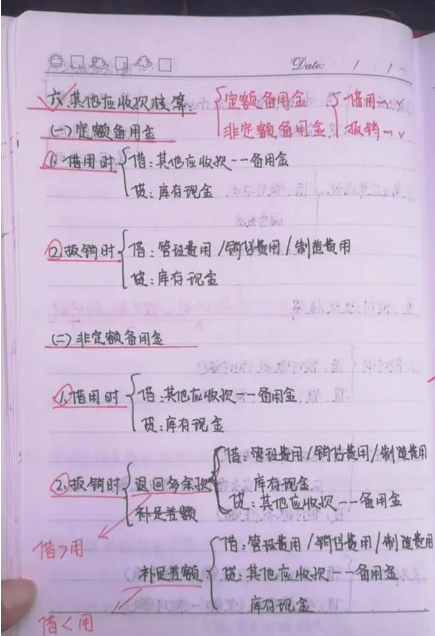 Date: / /
六.其他应收款核算: 定额备用金 借用 √
非定额备用金 报销 √
(一)定额备用金
1.借用时 借:其他应收款——备用金
贷:库存现金
2.报销时 借:管理费用/销售费用/制造费用
贷:库存现金
(二)非定额备用金
1.借用时 借:其他应收款——备用金
贷:库存现金
2.报销时 退回多余款 借:管理费用/销售费用/制造费用
库存现金
补足差额 贷:其他应收款——备用金
借>用
补足差额 借:管理费用/销售费用/制造费用
贷:其他应收款——备用金
库存现金
借<用